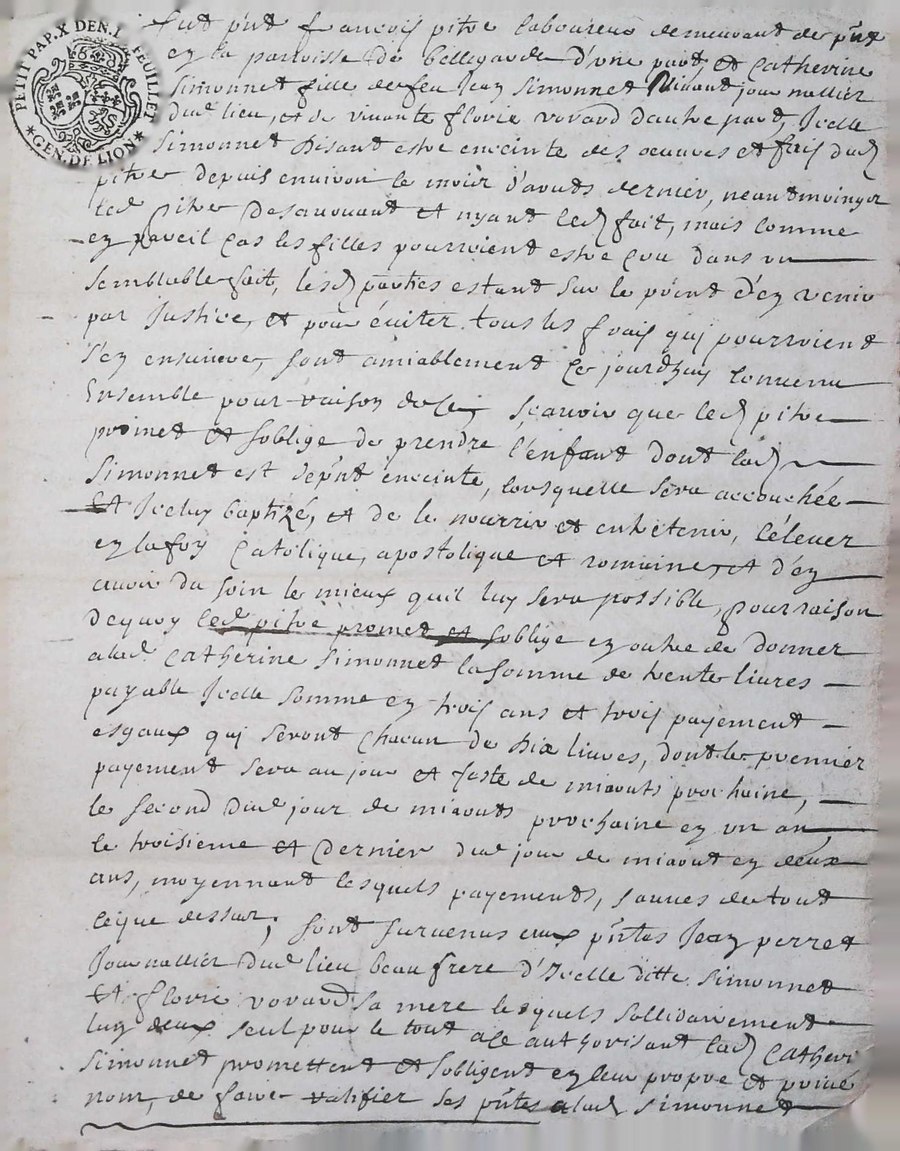 PETIT PAP. X DEN. L. FEUILLET
* GEN. DE LION *
fut p'nt françois pitre laboureur demeurant de p'nt
en la parroisse de bellegarde d'une part, et Catherine
Simonnet fille de feu Jean Simonnet vivant journallier
dud lieu, et de vivante florie vorard d'autre part, Icelle
Simonnet disant estre enceinte des oeuvres et fais dud
pitre depuis environ le moir d'aouts dernier, neantmoingr
led pitre desavouant et nyant led fait, mais comme
en pareil cas les filles pourroient estre crue dans un
semblable fait, lesd parties estant sur le point d'en venir
par Justice, et pour éviter tous les frais qui pourroient
s'en ensuivre, sont amiablement ce jourd'huy convenu
Ensemble pour raison de ce, sçauvoir que led pitre
promet et soblige de prendre l'enfant dont lad
Simonnet est dep'nt enceinte, lorsquelle sera accouchée
et Iceluy baptizé, et de le nourrir et entretenir, l'élever
en la foy Catolique, apostolique et romaine, et d'en
avoir du soin le mieux quil luy sera possible, pour raison
dequoy led pitre promet et soblige en outre de donner
alad Catherine Simonnet la somme de trente livres
payable Icelle somme en trois ans et trois payement
esgaux qui seront chacun de dix livres, dont le premier
payement sera au jour et feste de miaouts prochaine,
le second dud jour de miaouts prochaine en un an,
le troisieme et dernier dud jour de miaout en deux
ans, moyennant lesquels payements, sauves de tout
ceque dessus, sont survenus eux p'ntes Jean perret
Journallier dud lieu beau frere d'Icelle ditte Simonnet
et florie vorard sa mere lesquels sollidairement
luy deux seul pour le tout ace authorisant lad Catheri
Simonnet promettent et sobligent en leur propre et privé
nom, de faire ratifier ses p'ntes alad Simonnet